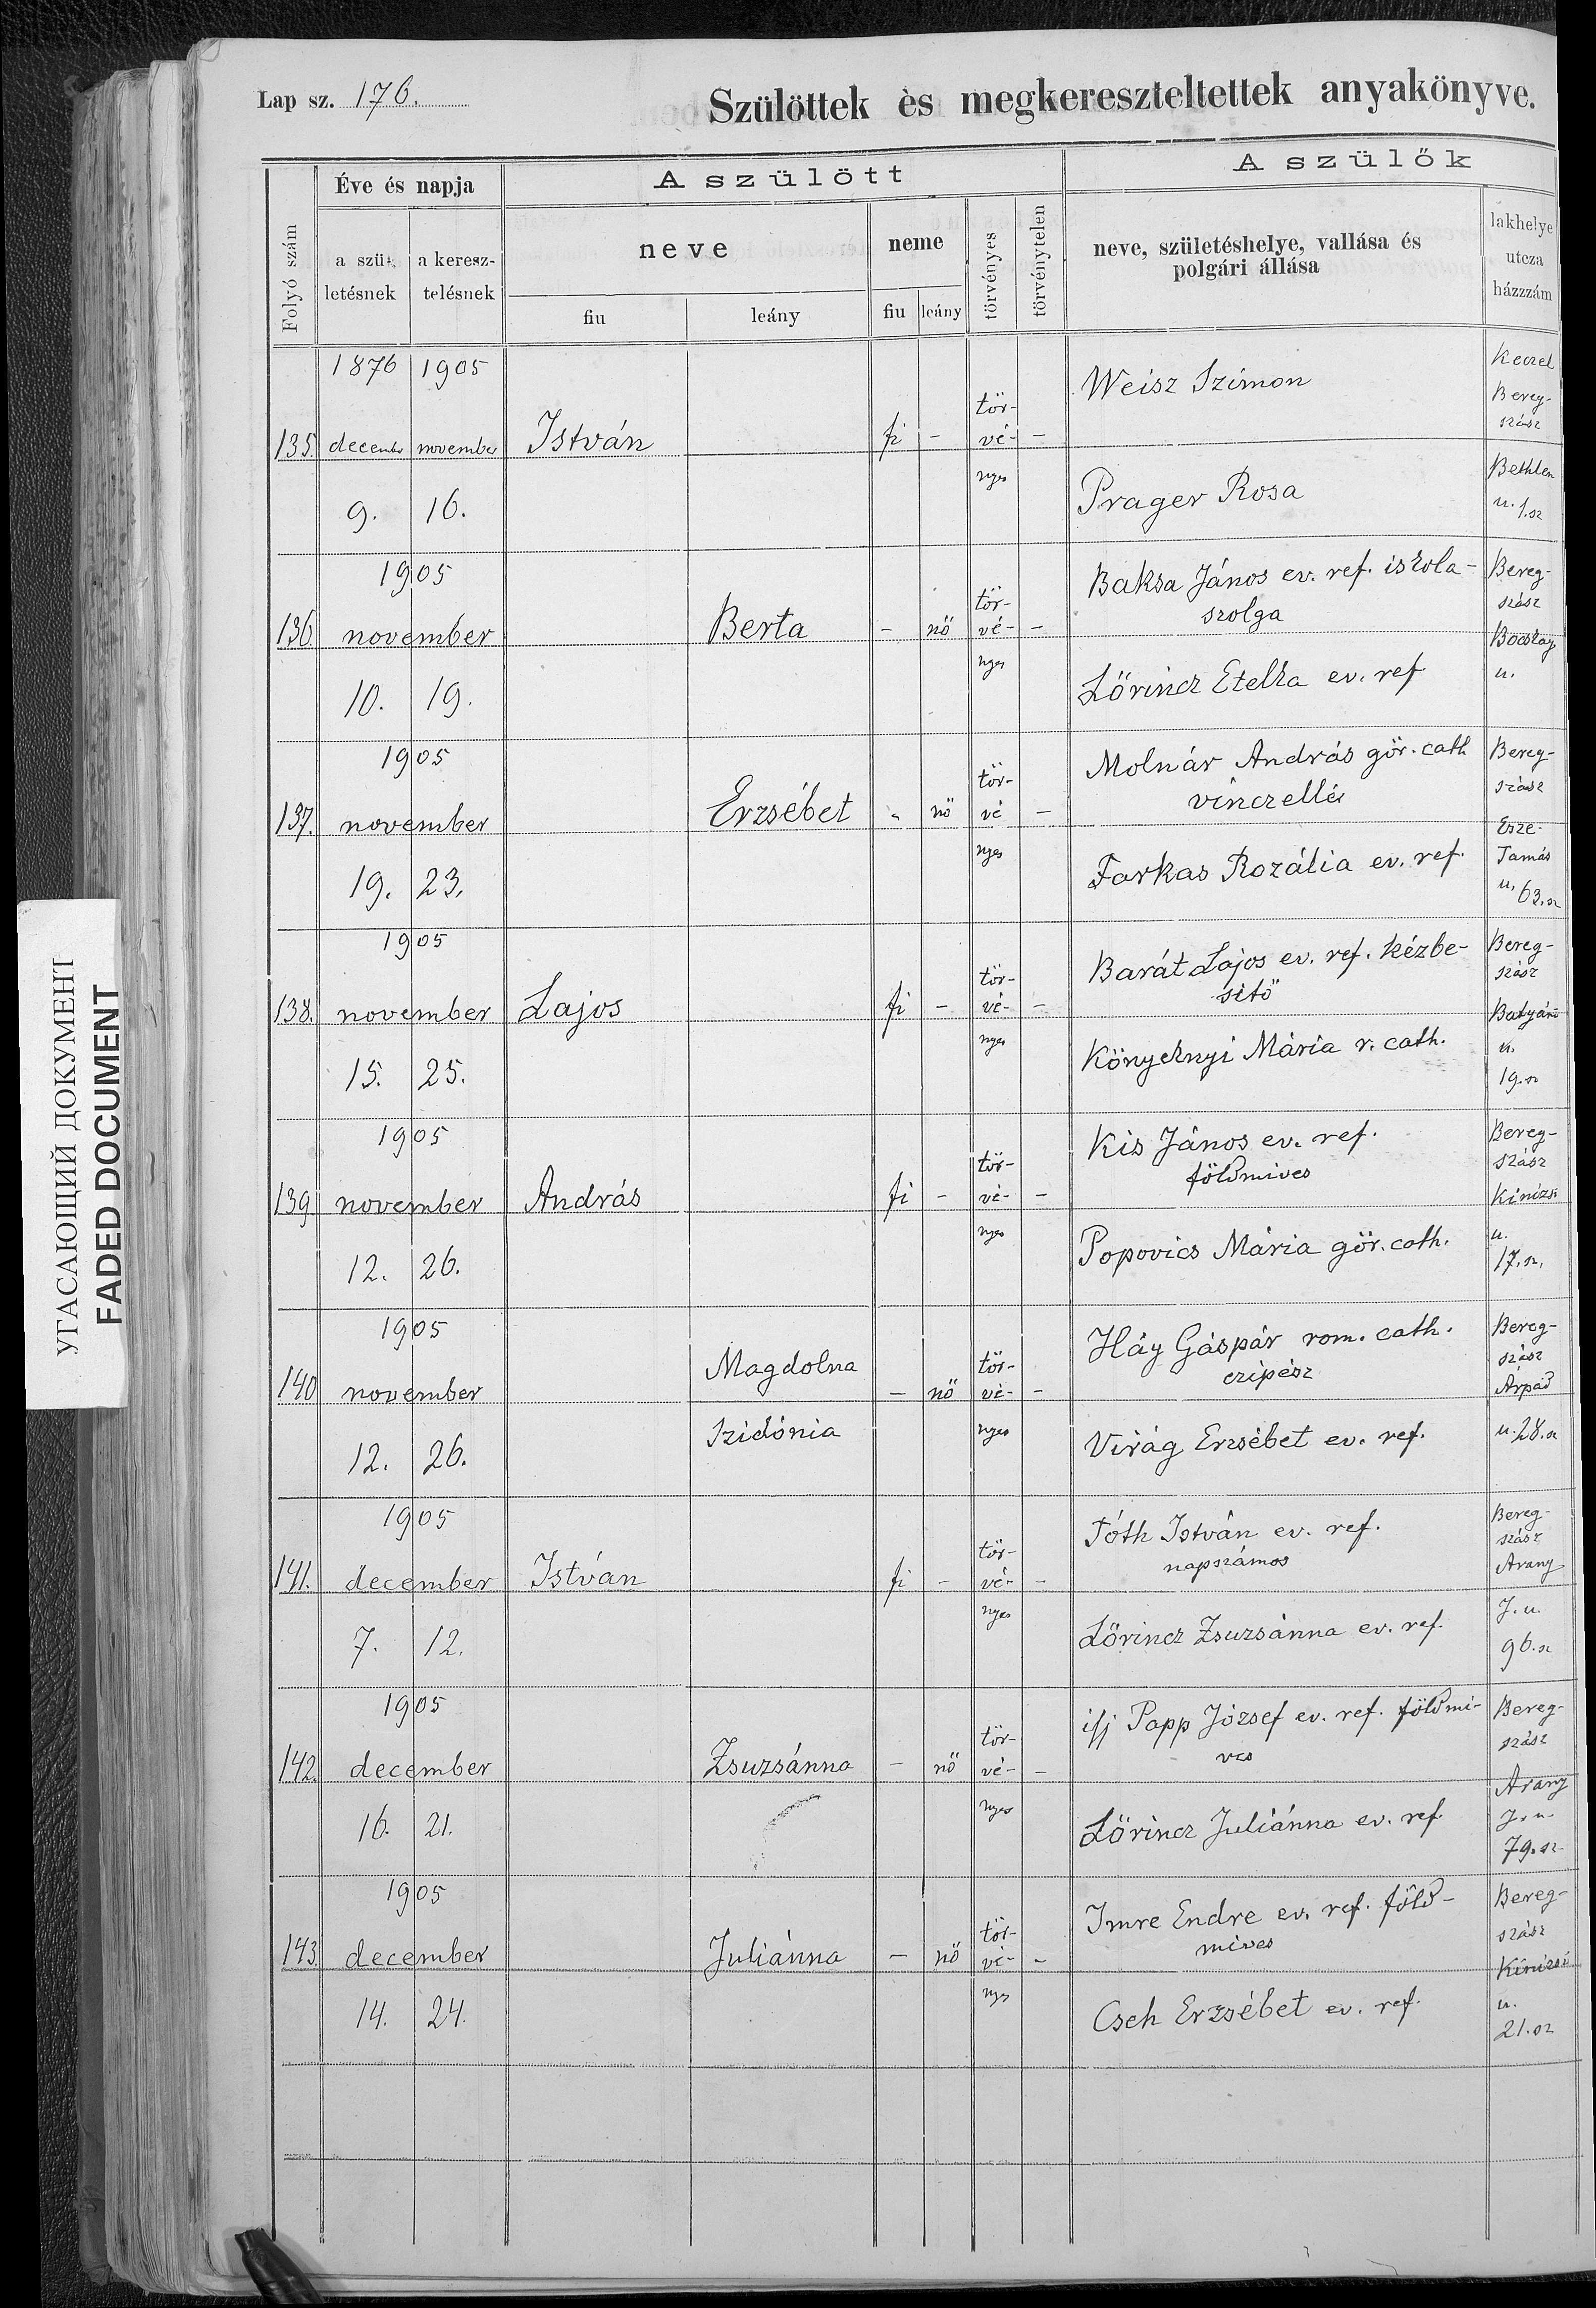 Lap sz. 176.
Szülöttek és megkereszteltettek anyakönyve.
Folyó szám
Éve és napja
a szü-
letésnek
a keresz-
telésnek
A szülött
neve
fiu
leány
neme
fiu
leány
törvényes
törvénytelen
A szülők
neve, születéshelye, vallása és
polgári állása
lakhelye
utcza
házzzám
1876 1905
135. december november István fi - tör-
vé-
nyes -
9. 16.
Weisz Szimon
Prager Rosa
Keczel
Bereg-
szász
Bethlen
u. 1. sz
1905
136. november Berta - nő tör-
vé-
nyes -
10. 19.
Baksa János ev. ref. iskola-
szolga
Lőrincz Etelka ev. ref
Bereg-
szász
Bocskay
u.
1905
137. november Erzsébet - nő tör-
vé
nyes -
19. 23.
Molnár András gör. cath
vinczellér
Farkas Rozália ev. ref.
Bereg-
szász
Esze-
Tamás
u. 63. sz
1905
138. november Lajos fi - tör-
vé-
nyes -
15. 25.
Barát Lajos ev. ref. kézbe-
sitő
Mária r. cath.
Bereg-
szász
Batyáni
u.
19. sz
1905
139. november András fi - tör-
vé-
nyes -
12. 26.
Kis János ev. ref.
földmives
Popovics Mária gör. cath.
Bereg-
szász
Kinizsi
u.
17. sz.
1905
140 november Magdolna
Szidónia - nő tör-
vé-
nyes -
12. 26.
Háy Gáspár rom. cath.
czipész
Virág Erzsébet ev. ref.
Bereg-
szász
Árpád
u. 28. sz
1905
141. december István fi - tör-
vé-
nyes -
7. 12.
Tóth István ev. ref.
napszámos
Lőrincz Zsuzsánna ev. ref.
Bereg-
szász
Arany
J. u.
96. sz
1905
142. december Zsuzsánna - nő tör-
vé-
nyes -
16. 21.
ifj Papp József ev. ref. földmi-
ves
Lőrincz Juliánna ev. ref.
Bereg-
szász
Arany
J. u.
79. sz
1905
143. december Juliánna - nő tör-
vé-
nyes -
14. 24.
Imre Endre ev. ref. föld-
mives
Cseh Erzsébet ev. ref.
Bereg-
szász
Kinizsi
u.
21. sz
УГАСАЮЩИЙ ДОКУМЕНТ
FADED DOCUMENT